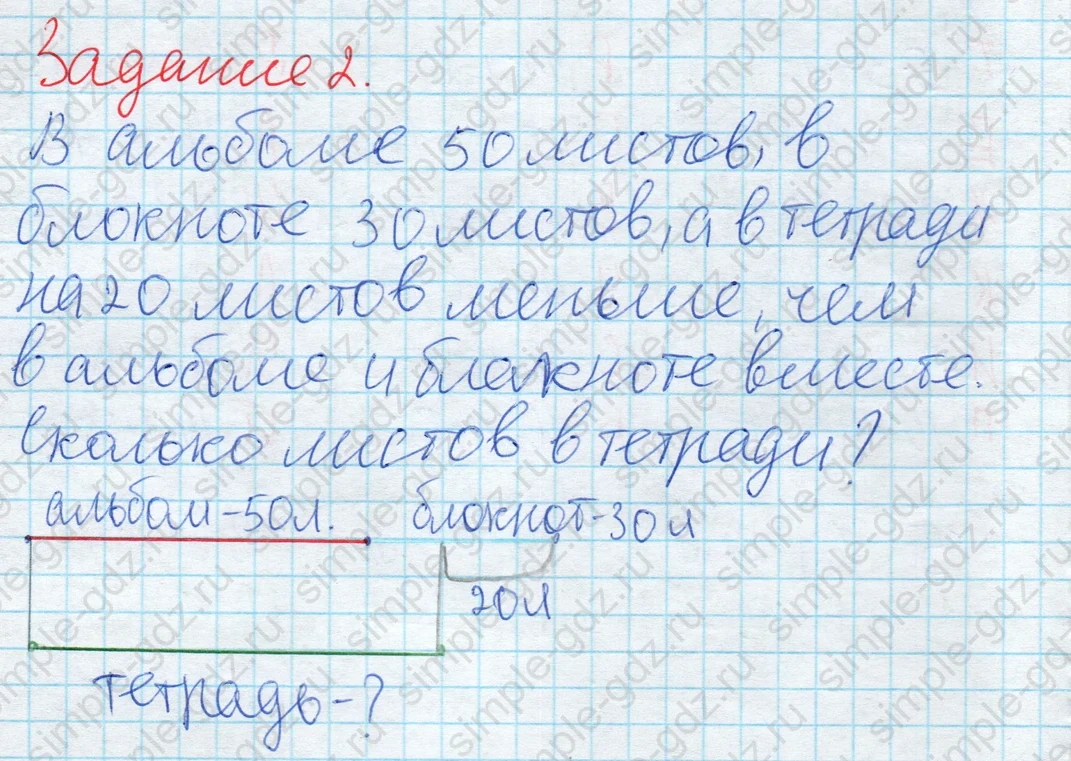 Задание 2.
В альбоме 50 листов, в
блокноте 30 листов, а в тетради
на 20 листов меньше, чем
в альбоме и блокноте вместе.
Сколько листов в тетради?
альбом-50л. блокнот-30л
20л
тетрадь-?
simple-gdz.ru